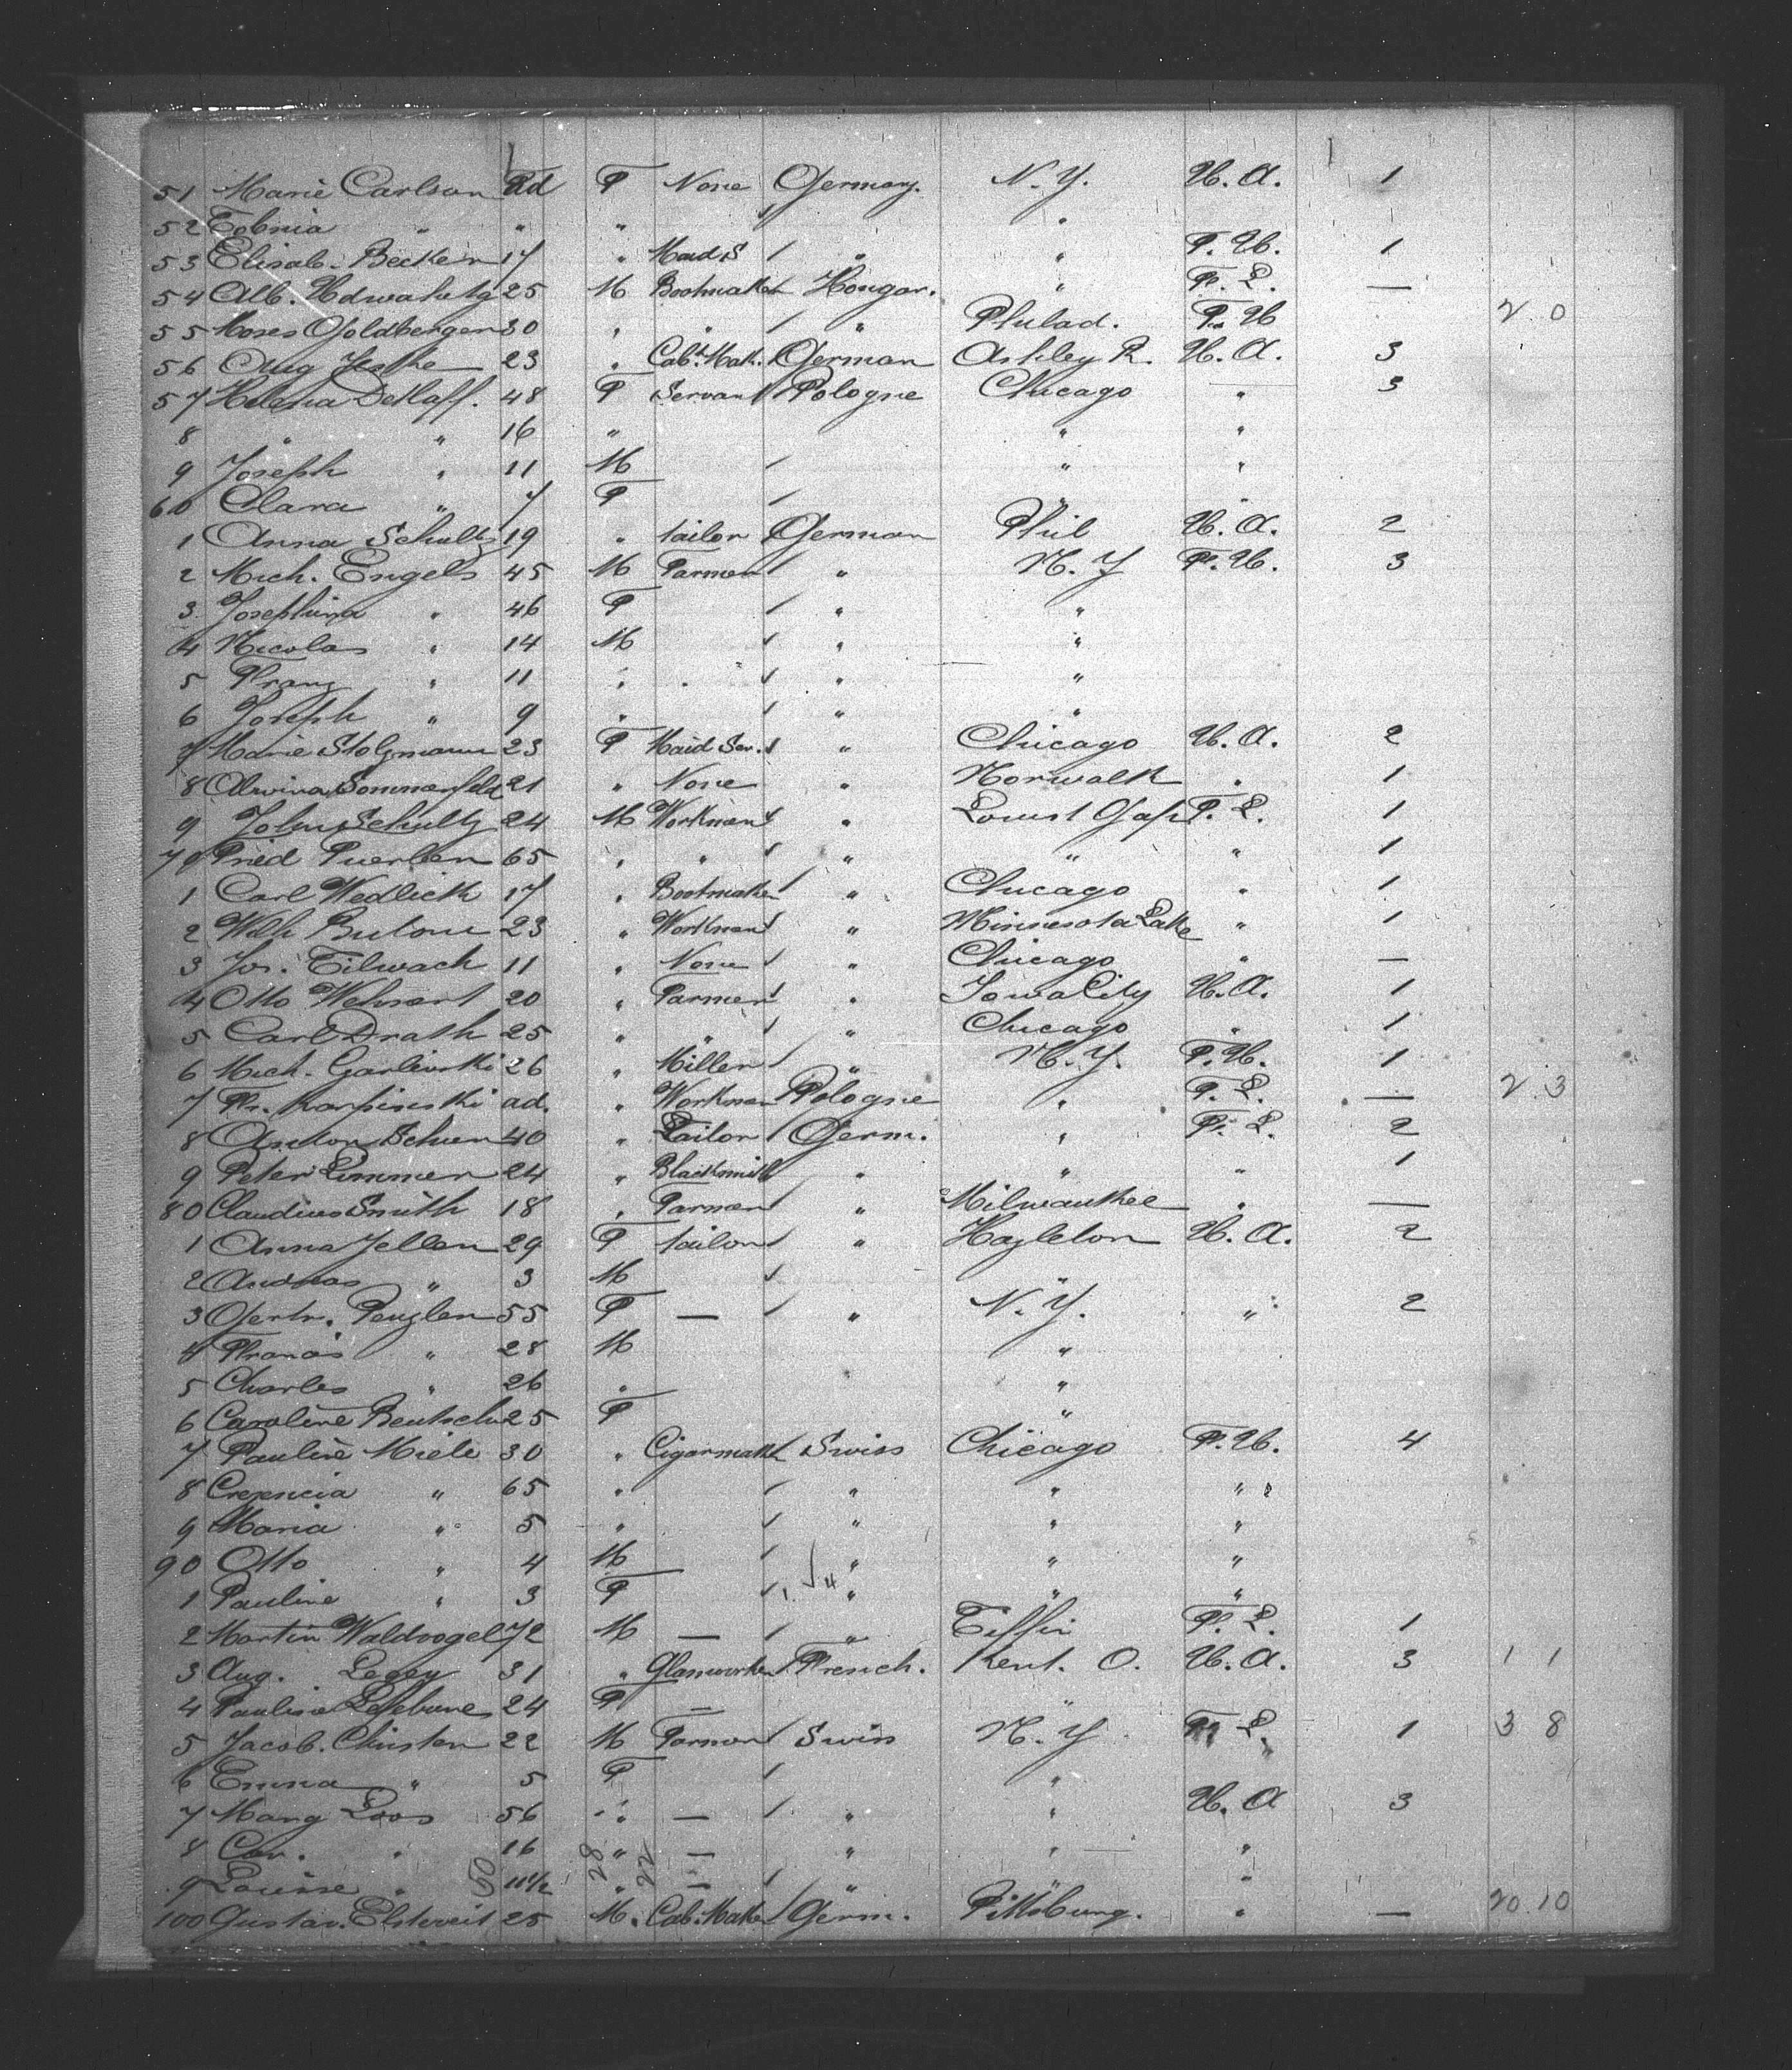 51 Marie Carlson Ad F None Germany. N.Y. U.A. 1
52 " " " "
53 Elisab. Becker 17 " Maid S / " " F.U. 1
54 Alb. 25 M Bootmaker Hongar. " F.L. —
55 Moses Goldberger 30 " " / " Philad. F.U 2.0
56 Aug Jeske 23 " Cab. Mak. German Ashley P. U.A. 3
57 Helena Detlaff. 48 F Servant Pologne Chicago " 3
8 " " 16 " " "
9 Joseph " 11 M / " "
60 Clara " 7 F / " "
1 Anna Schultz 19 " tailor German Phil U.A. 2
2 Mich. Engels 45 M Farmer / " N.Y F.U. 3
3 Josephina " 46 F / " "
4 Nicolas " 14 M / " "
5 Franz " 11 " / " "
6 Joseph " 9 " / " "
7 Marie Stolzmann 23 F Maid Ser. / " Chicago U.A. 2
8 Alwina Sommerfeld 21 " None " Norwalk " 1
9 John Schultz 24 M Workman / " Locust Gap F.L. 1
70 Fried 65 " " / " " " 1
1 Carl Wedlick 17 " Bootmaker / " Chicago " 1
2 Wilh 23 " Workman / " Minnesota Lake " 1
3 Jos. Eilwach 11 " None / " Chicago " —
4 Otto Wehnert 20 " Farmer / " Iowa City U.A. 1
5 Carl Drath 25 " " / " Chicago " 1
6 Mich. Garlinski 26 " Miller / " N.Y. F.U. 1
7 Fr. Karpinski ad. " Workman Pologne " F.L. — 2.3
8 Anton 40 " Tailor / Germ. " F.L. 2
9 Peter Zimmer 24 " Blacksmith " " " 1
80 Claudius Smith 18 " Farmer / " Milwaukee " —
1 Anna Jellen 29 F tailor / " Hazleton U.A. 2
2 Andreas " 3 M / "
3 Gertr. Penzler 55 F — / " N.Y. " 2
4 Francis " 28 M "
5 Charles " 26 " "
6 Caroline 25 F "
7 Pauline Miele 30 " Cigarmaker Swiss Chicago F.U. 4
8 " 65 " / " " "
9 Maria " 5 " / " " "
90 Otto " 4 M — / " " "
1 Pauline " 3 F / 4 " " "
2 Martin Waldvogel 72 M — / " Tiffin F.L. 1
3 Aug. Legey 31 " Glasworker French. Kent. O. U.A. 3 1 1
4 Pauline Lefebure 24 F — "
5 Jacob. Christen 22 M Farmer / Swiss N.Y F.L. 1 3 8
6 Emma " 5 F / " "
7 Marg Loos 56 " — / " " U.A 3
8 Car. " 16 " — " " "
9 Louise " 11½ " — / " " "
50 28 22
100 Gustav. 25 M. Cab. Maker / Germ. Pittsburg. " — 20.10